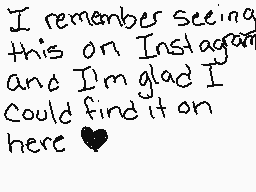 I remember seeing
this on Instagram
and I'm glad I
could find it on
here ♥